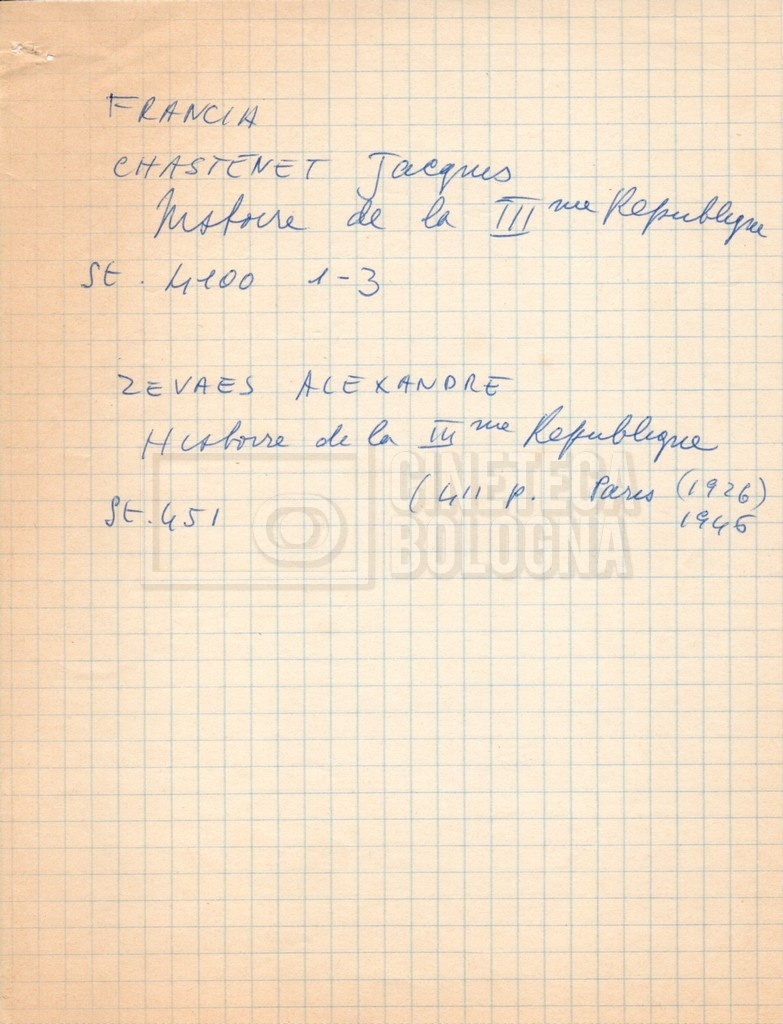 FRANCIA
CHASTENET Jacques
Histoire de la III me Republique
St. 4100 1-3
ZEVAES ALEXANDRE
Histoire de la III me Republique
(411 p. Paris (1926)
St. 451
1946
CINETECA
BOLOGNA